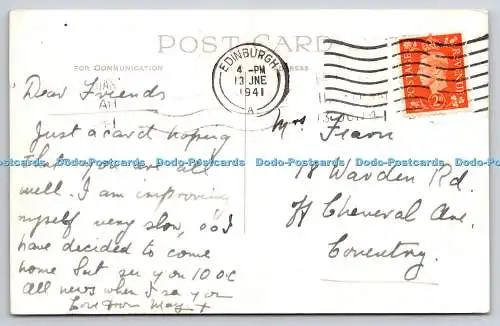 POST CARD
FOR COMMUNICATION
ADDRESS
EDINBURGH
4 - PM
13 JNE
1941
A
Dear Friends
Just a card hoping
that you are all
well. I am improving
myself very slow, so I
have decided to come
home Sat see you 10 oc
all news when I see you
Love from May x
Mrs Fearn
18 Warden Rd.
off Cheveral Ave.
Coventry.
Dodo-Postcards Dodo-Postcards Dodo-Postcards Dodo-Postcards Dodo-Postcards Dodo-Postcards
POSTAGE
REVENUE
2D